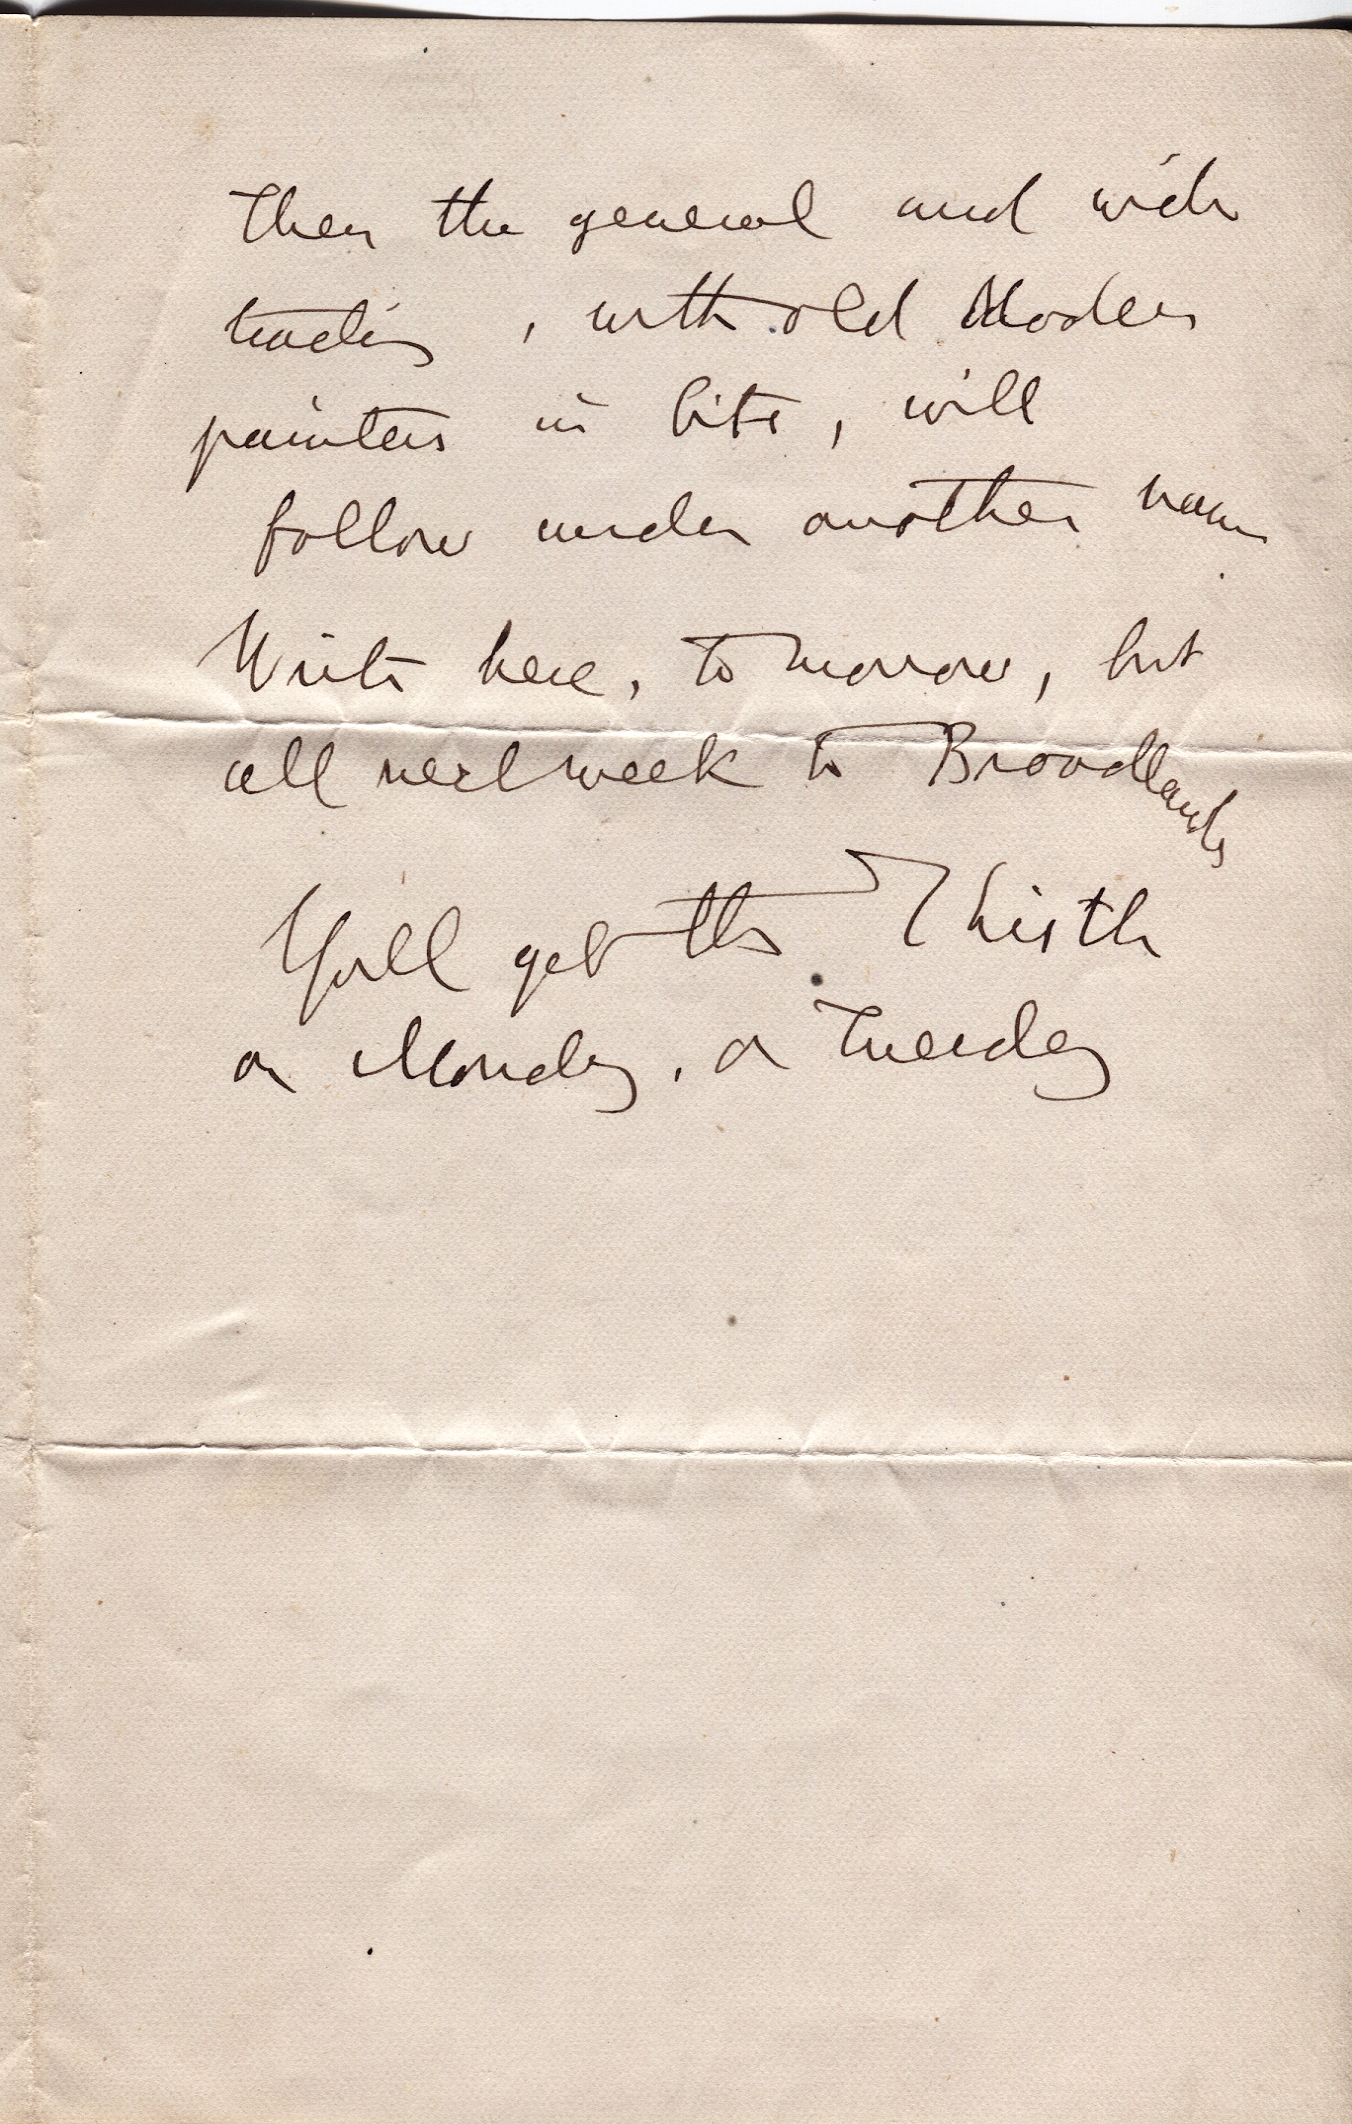 Then the general and wide
trading, with old Modern
painters in bits, will
follow under another name
Write here, tomorrow, but
all next week to Broadlands
You'll get the Thistle
on Monday, or Tuesday